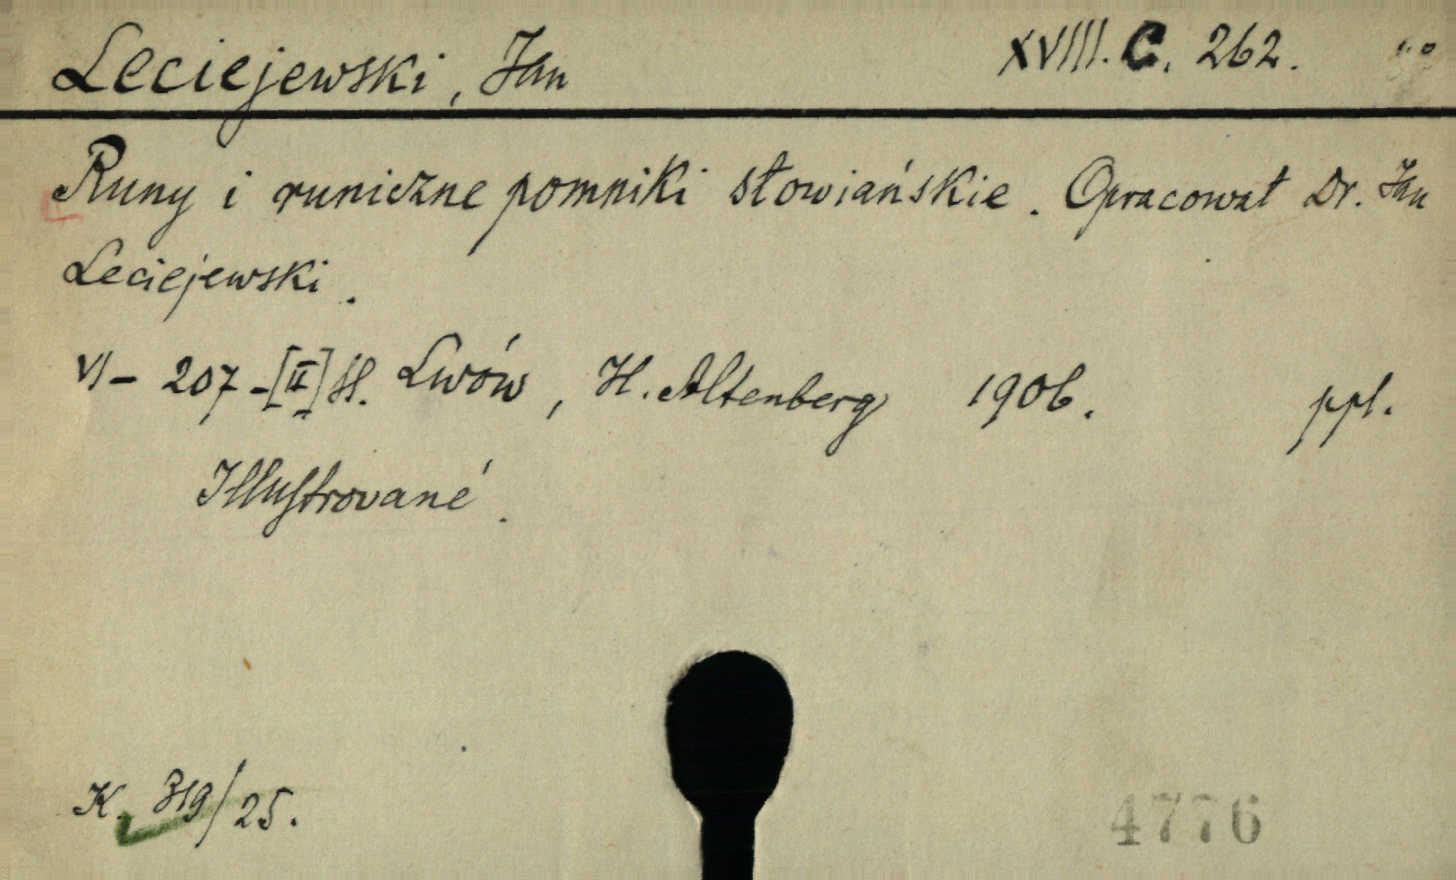 Leciejewski, Jan XVIII. C. 262.
Runy i runiczne pomniki słowiańskie. Opracował Dr. Jan
Leciejewski.
VI - 207 - [II] st. Lwów, H. Altenberg 1906. ppl.
Illustrované.
K. 319/25.
4776